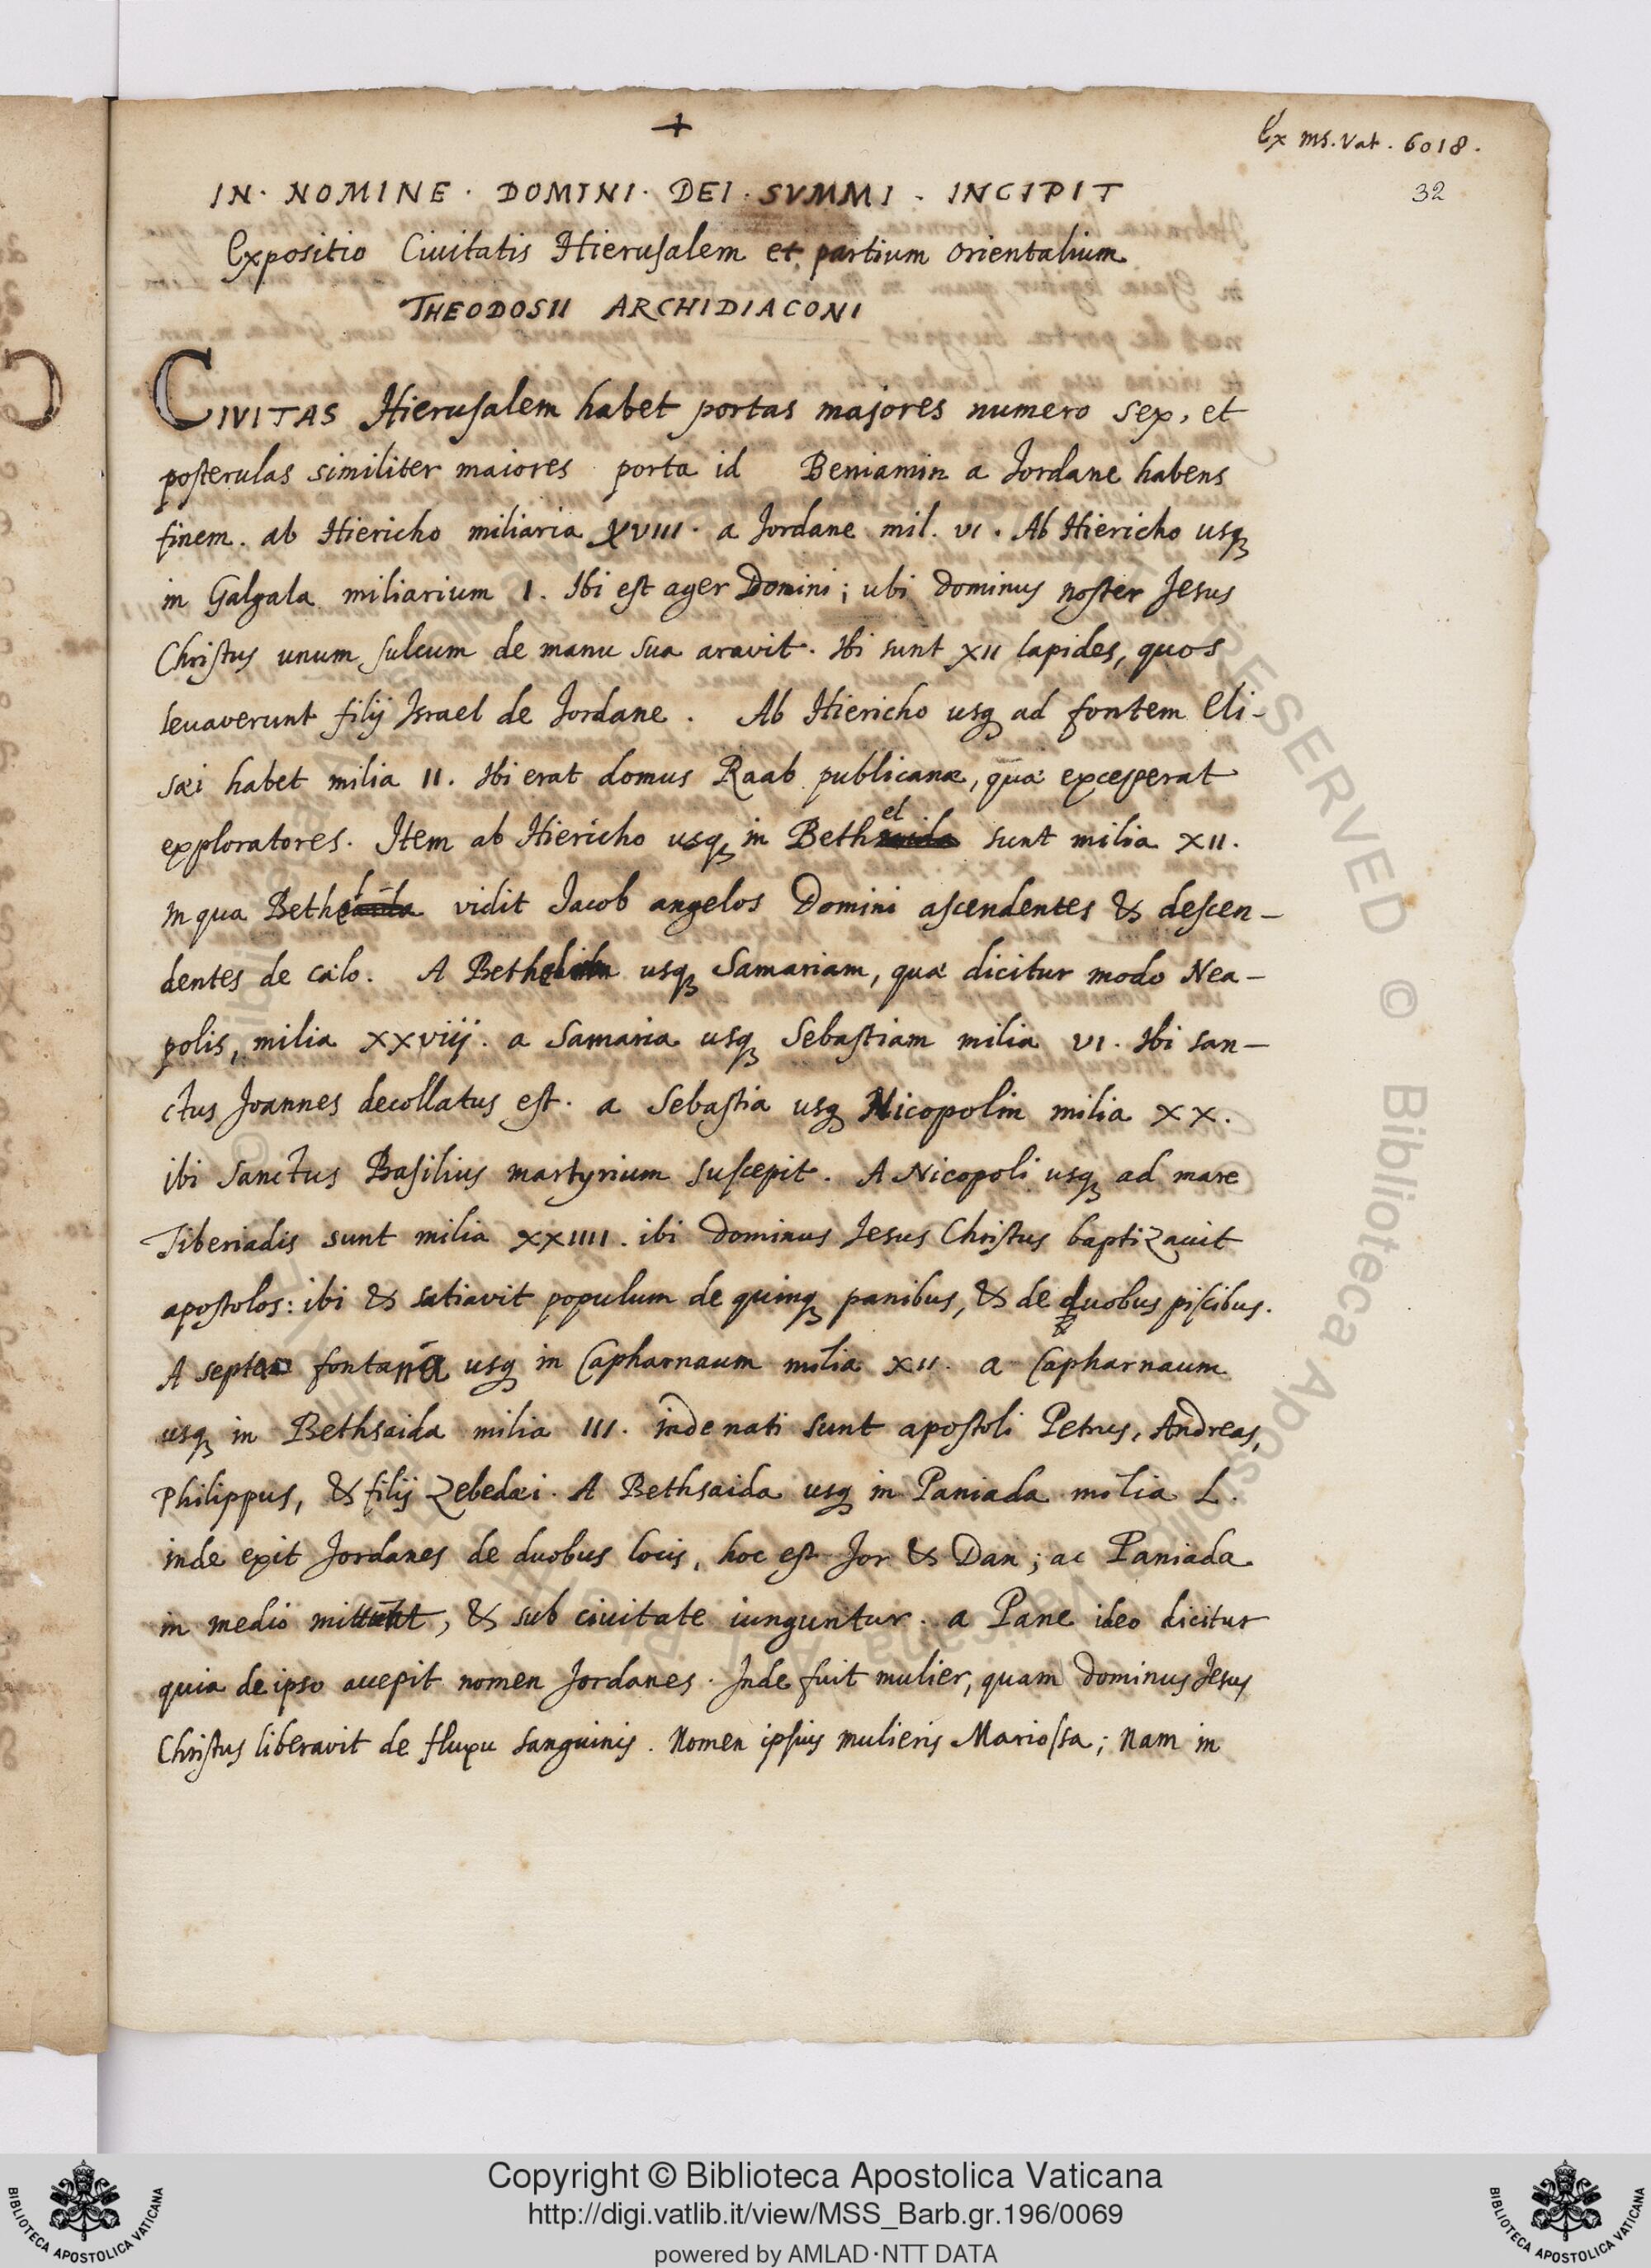 +
Ex ms. Vat. 6018.
32
IN · NOMINE · DOMINI · DEI · SVMMI · INCIPIT
Expositio Ciuitatis Hierusalem et partium orientalium
THEODOSII ARCHIDIACONI
CIVITAS Hierusalem habet portas majores numero sex, et
posterulas similiter maiores porta id Beniamin a Jordane habens
finem. ab Hiericho miliaria XVIII. a Jordane mil. VI. Ab Hiericho usq
in Galgala miliarium I. Ibi est ager Domini; ubi Dominus noster Jesus
Christus unum sulcum de manu sua aravit. Ibi sunt XII lapides, quos
levaverunt filij Israel de Jordane. Ab Hiericho usq ad fontem Eli-
sæi habet milia II. Ibi erat domus Raab publicanæ, quæ exceperat
exploratores. Item ab Hiericho usq in Bethel sunt milia XII.
in qua Bethel vidit Jacob angelos Domini ascendentes & descen-
dentes de cælo. A Bethel usq Samariam, quæ dicitur modo Nea-
polis, milia XXVIIJ. a Samaria usq Sebastiam milia VI. Ibi san-
ctus Joannes decollatus est. a Sebastia usq Nicopolin milia XX.
ibi Sanctus Basilius martyrium suscepit. A Nicopoli usq ad mare
Tiberiadis sunt milia XXIIII. ibi Dominus Jesus Christus baptizauit
apostolos: ibi & satiavit populum de quinq panibus, & de duobus piscibus.
A septem fontana usq in Capharnaum milia XII. a Capharnaum
usq in Bethsaida milia III. inde nati sunt apostoli Petrus, Andreas,
Philippus, & filij Zebedæi. A Bethsaida usq in Paniada milia L.
inde exit Jordanes de duobus locis, hoc est Jor & Dan; ac Paniada
in medio mittunt, & sub ciuitate iunguntur. a Pane ideo dicitur
quia de ipso accepit nomen Jordanes. Inde fuit mulier, quam Dominus Jesus
Christus liberavit de fluxu sanguinis. Nomen ipsius mulieris Mariossa; Nam in
© Biblioteca Apostolica Vaticana
Copyright © Biblioteca Apostolica Vaticana
http://digi.vatlib.it/view/MSS_Barb.gr.196/0069
powered by AMLAD·NTT DATA
BIBLIOTECA APOSTOLICA VATICANA
BIBLIOTECA APOSTOLICA VATICANA